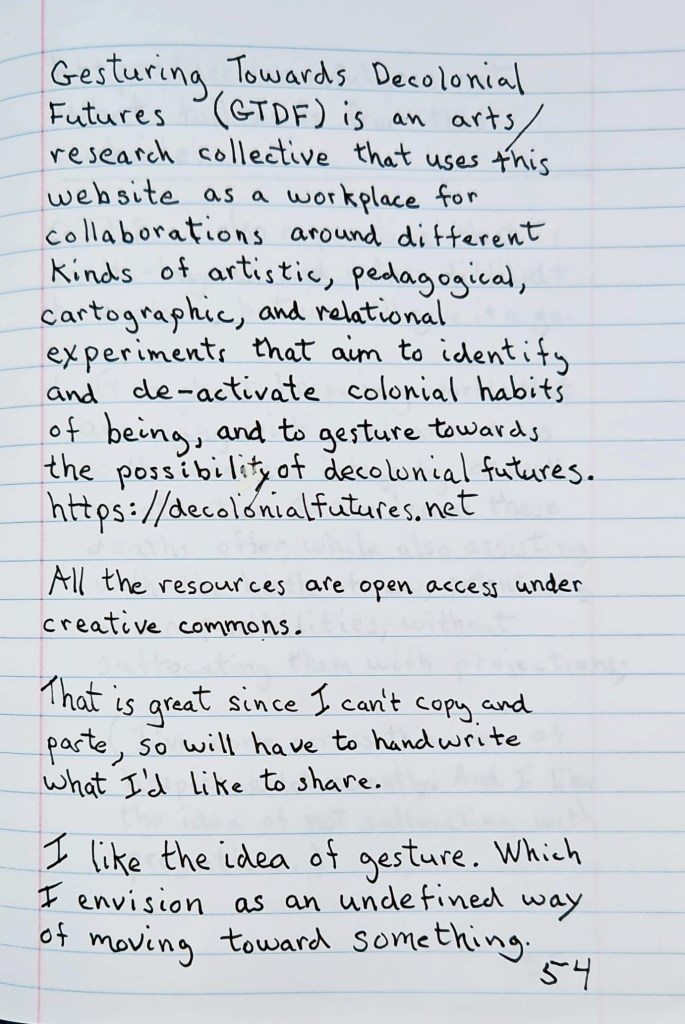 Gesturing Towards Decolonial
Futures (GTDF) is an arts/
research collective that uses this
website as a workplace for
collaborations around different
kinds of artistic, pedagogical,
cartographic, and relational
experiments that aim to identify
and de-activate colonial habits
of being, and to gesture towards
the possibility of decolonial futures.
https://decolonialfutures.net
All the resources are open access under
creative commons.
That is great since I can't copy and
parte, so will have to handwrite
what I'd like to share.
I like the idea of gesture. Which
I envision as an undefined way
of moving toward something.
54